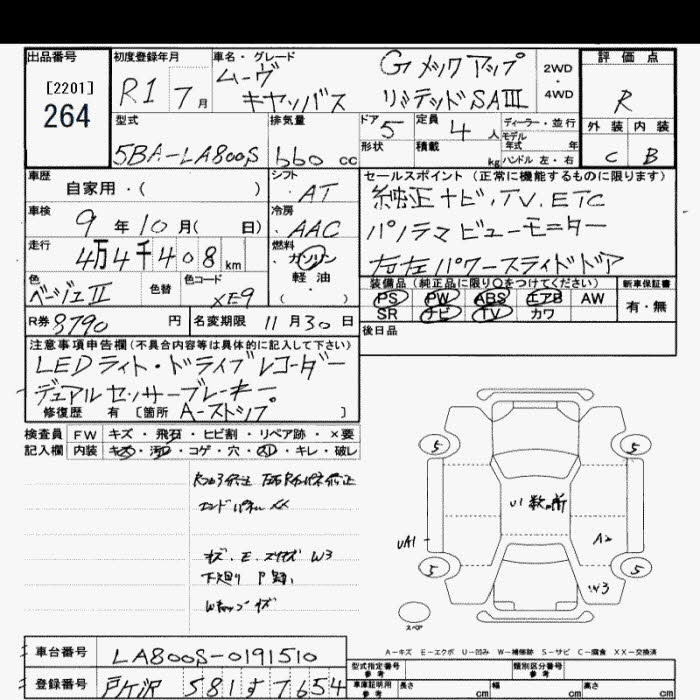 出品番号
[2201]
264
初度登録年月
R1 7月
車名・グレード
ムーヴ
キャンバス
Gメイクアップ
リミテッドSAIII
2WD
・
4WD
評価点
R
外装 内装
C B
型式
5BA-LA800S
排気量
660 cc
ドア
5
定員
4人
形状
積載
kg
ディーラー・並行
モデル
年式 年
ハンドル 左・右
車歴
自家用・( )
シフト
・AT
車検
9年10月( 日)
冷房
・AAC
走行
4万4千408km
燃料
・ガソリン
・軽油
・( )
色
ベージュII
色替
色コード
XE9
R券 8790 円
名変期限 11月30日
セールスポイント(正常に機能するものに限ります)
純正ナビ、TV、ETC
パノラマビューモニター
右左パワースライドドア
装備品(純正品に限り○をつけてください)
PS PW ABS エアB AW
SR ナビ TV カワ
新車保証書
有・無
後日品
注意事項申告欄(不具合内容等は具体的に記入して下さい)
LEDライト・ドライブレコーダー
デュアルセンサーブレーキ
修復歴 有 [箇所 A-ストップ ]
検査員 FW キズ・飛石・ヒビ割・リペア跡・×要
記入欄 内装 キズ・汚れ・コゲ・穴・スレ・キレ・破レ
エンドパネル XX
W3
下廻り
5
5
5
5
U1 数ヶ所
UA1
A2
W3
スペア
A-キズ E-エクボ U-凹み W-補修跡 S-サビ C-腐食 XX-交換済
車台番号 LA800S-0191510
登録番号 581 す 7654
型式指定番号
参考
類別区分番号
参考
車庫証明用
参考
長さ cm 幅 cm 高さ cm